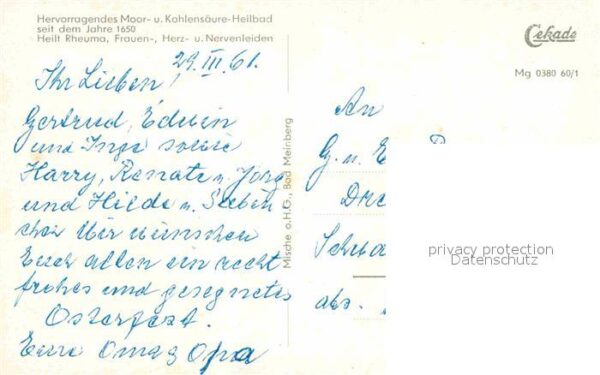 Hervorragendes Moor- u. Kohlensäure-Heilbad
seit dem Jahre 1650
Heilt Rheuma, Frauen-, Herz- u. Nervenleiden
29.III.61.
Ihr Lieben!
Gertrud, Edwin
und Inge sowie
Harry, Renate u. Jörg
und Hilde u.
chen Wir wünschen
Euch allen ein recht
frohes und gesegnetes
Osterfest.
Eure Oma & Opa
Mische o.H.G., Bad Meinberg
Cekade
Mg 0380 60/1
An
G. u. E
Dre
Schwa
abs.
privacy protection
Datenschutz